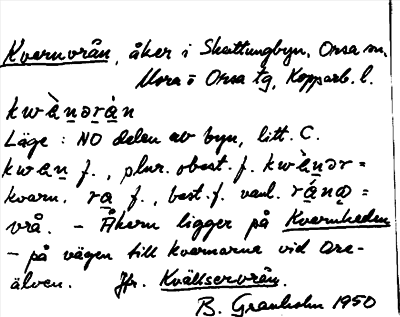 Kvernvrån, åker i Skattungbyn, Orsa sn.
Mora o Orsa tg, Kopparb. l.
kwὲn̲ərὰ̲n
Läge: NO delen av byn, litt. C.
kwεn̲ f., plur. obest. f. kwὲn̲ər =
kvarn. ra̲ f., best. f. vanl. rὰ̲na̲ =
vrå. - Åkern ligger på Kvernheden
- på vägen till kvarnarna vid Ore-
älven. Jfr. Kvällservrån.
B. Granholm 1950